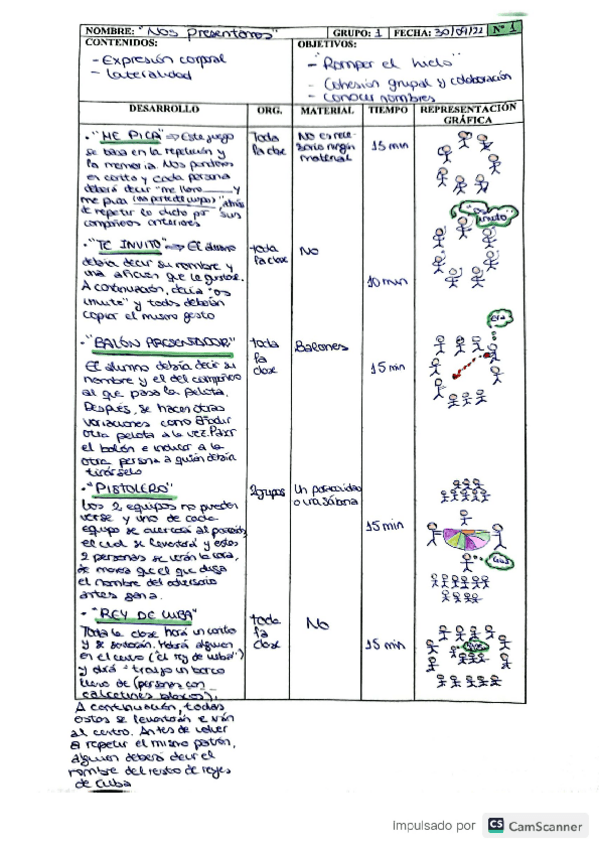 NOMBRE: "Nos presentamos" GRUPO: 1 FECHA: 30/09/22 Nº 1
CONTENIDOS:
- Expresión corporal
- Lateralidad
OBJETIVOS:
- "Romper el hielo"
- Cohesión grupal y colaboración
- Conocer nombres
DESARROLLO ORG. MATERIAL TIEMPO REPRESENTACIÓN GRÁFICA
· "ME PICA" => Este juego
se basa en la repetición y
la memoria. Nos pondremos
en corito y cada persona
deberá decir "me llamo ___ y
me pica (una parte del cuerpo)" atrás
de repetir lo dicho por sus
compañeros anteriores
Toda
la clase
No es nece-
sario ningún
material
15 min
· "TE INVITO" => El alumno
debría decir su nombre y
una afición que le gustase.
A continuación, decía "os
invito" y todos deberán
copiar el mismo gesto
toda
la clase
No
10 min
· "BALÓN PRESENTADOR"
El alumno debría decir su
nombre y el del compañero
al que pasa la pelota.
Después, se hacen otras
variaciones como añadir
otra pelota a la vez. Pasar
el balón e indicar a la
otra persona a quién debría
tirárselo
toda
la
clase
Balones
15 min
· "PISTOLERO"
Los 2 equipos no pueden
verse y uno de cada
equipo se acercará al paracaídas,
el cual se levantará y estas
2 personas se verán la cara,
de manera que el que diga
el nombre del adversario
antes gana.
2 grupos
Un paracaídas
o una sábana
15 min
· "REY DE CUBA"
Toda la clase hará un corito
y se sentarán. Habrá alguien
en el centro ("el rey de cuba")
y dirá "traigo un barco
lleno de (personas con
calcetines blancos).
A continuación, todas
estas se levantarán e irán
al centro. Antes de volver
a repetir el mismo patrón,
alguien deberá decir el
nombre del resto de reyes
de Cuba
toda
la
clase
No
15 min
Impulsado por CS CamScanner